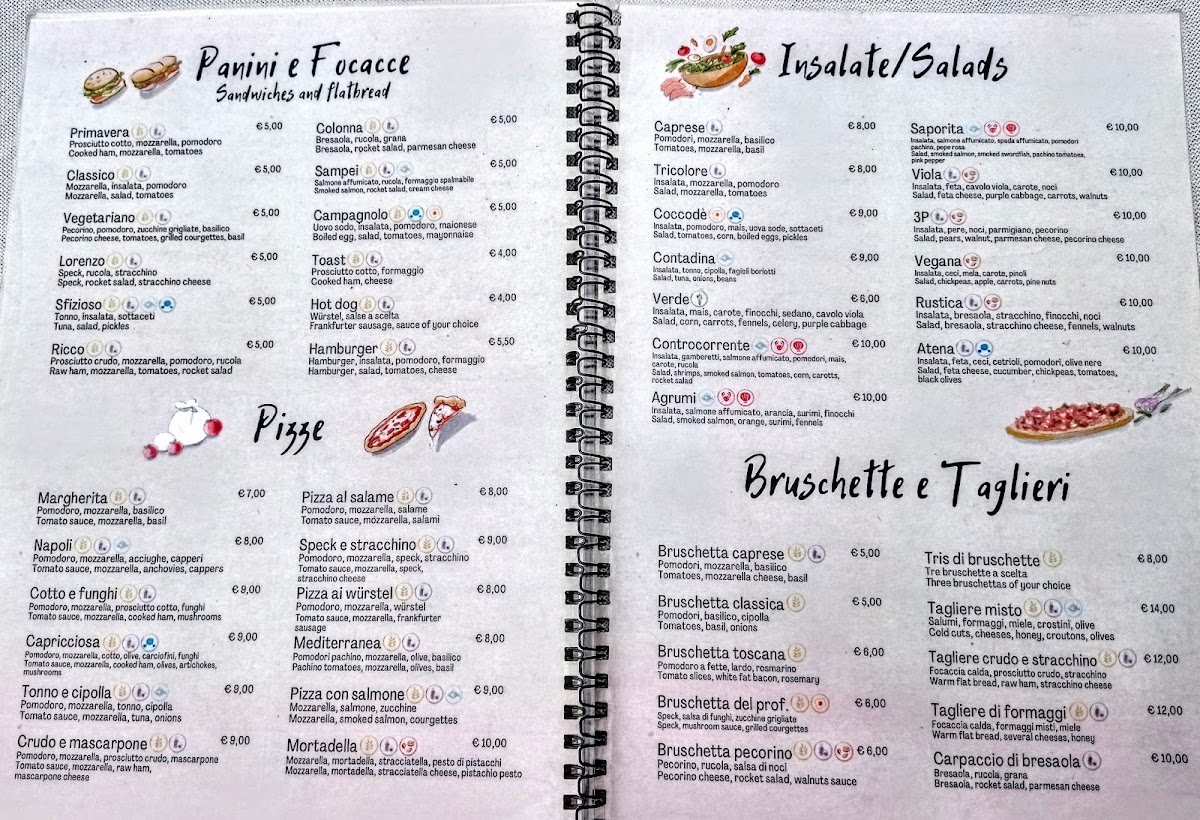 Panini e Focacce
Sandwiches and flatbread
Primavera €5,00
Prosciutto cotto, mozzarella, pomodoro
Cooked ham, mozzarella, tomatoes
Classico €5,00
Mozzarella, insalata, pomodoro
Mozzarella, salad, tomatoes
Vegetariano €5,00
Pecorino, pomodoro, zucchine grigliate, basilico
Pecorino cheese, tomatoes, grilled courgettes, basil
Lorenzo €5,00
Speck, rucola, stracchino
Speck, rocket salad, stracchino cheese
Sfizioso €5,00
Tonno, insalata, sottaceti
Tuna, salad, pickles
Ricco €5,00
Prosciutto crudo, mozzarella, pomodoro, rucola
Raw ham, mozzarella, tomatoes, rocket salad
Colonna €5,00
Bresaola, rucola, grana
Bresaola, rocket salad, parmesan cheese
Sampei €5,00
Salmone affumicato, rucola, formaggio spalmabile
Smoked salmon, rocket salad, cream cheese
Campagnolo €5,00
Uovo sodo, insalata, pomodoro, maionese
Boiled egg, salad, tomatoes, mayonnaise
Toast €4,00
Prosciutto cotto, formaggio
Cooked ham, cheese
Hot dog €4,00
Würstel, salse a scelta
Frankfurter sausage, sauce of your choice
Hamburger €5,50
Hamburger, insalata, pomodoro, formaggio
Hamburger, salad, tomatoes, cheese
Pizze
Margherita €7,00
Pomodoro, mozzarella, basilico
Tomato sauce, mozzarella, basil
Napoli €8,00
Pomodoro, mozzarella, acciughe, capperi
Tomato sauce, mozzarella, anchovies, cappers
Cotto e funghi €9,00
Pomodoro, mozzarella, prosciutto cotto, funghi
Tomato sauce, mozzarella, cooked ham, mushrooms
Capricciosa €9,00
Pomodoro, mozzarella, cotto, olive, carciofini, funghi
Tomato sauce, mozzarella, cooked ham, olives, artichokes,
mushrooms
Tonno e cipolla €9,00
Pomodoro, mozzarella, tonno, cipolla
Tomato sauce, mozzarella, tuna, onions
Crudo e mascarpone €9,00
Pomodoro, mozzarella, prosciutto crudo, mascarpone
Tomato sauce, mozzarella, raw ham,
mascarpone cheese
Pizza al salame €8,00
Pomodoro, mozzarella, salame
Tomato sauce, mozzarella, salami
Speck e stracchino €9,00
Pomodoro, mozzarella, speck, stracchino
Tomato sauce, mozzarella, speck,
stracchino cheese
Pizza ai würstel €8,00
Pomodoro, mozzarella, würstel
Tomato sauce, mozzarella, frankfurter
sausage
Mediterranea €8,00
Pomodori pachino, mozzarella, olive, basilico
Pachino tomatoes, mozzarella, olives, basil
Pizza con salmone €9,00
Mozzarella, salmone, zucchine
Mozzarella, smoked salmon, courgettes
Mortadella €10,00
Mozzarella, mortadella, stracciatella, pesto di pistacchi
Mozzarella, mortadella, stracciatella cheese, pistachio pesto
Insalate/Salads
Caprese €8,00
Pomodori, mozzarella, basilico
Tomatoes, mozzarella, basil
Tricolore €8,00
Insalata, mozzarella, pomodoro
Salad, mozzarella, tomatoes
Coccodè €9,00
Insalata, pomodoro, mais, uova sode, sottaceti
Salad, tomatoes, corn, boiled eggs, pickles
Contadina €9,00
Insalata, tonno, cipolla, fagioli borlotti
Salad, tuna, onions, beans
Verde €6,00
Insalata, mais, carote, finocchi, sedano, cavolo viola
Salad, corn, carrots, fennels, celery, purple cabbage
Controcorrente €10,00
Insalata, gamberetti, salmone affumicato, pomodori, mais,
carote, rucola
Salad, shrimps, smoked salmon, tomatoes, corn, carotts,
rocket salad
Agrumi €10,00
Insalata, salmone affumicato, arancia, surimi, finocchi
Salad, smoked salmon, orange, surimi, fennels
Saporita €10,00
Insalata, salmone affumicato, spada affumicato, pomodori
pachino, pepe rosa
Salad, smoked salmon, smoked swordfish, pachino tomatoes,
pink pepper
Viola €10,00
Insalata, feta, cavolo viola, carote, noci
Salad, feta cheese, purple cabbage, carrots, walnuts
3P €10,00
Insalata, pere, noci, parmigiano, pecorino
Salad, pears, walnut, parmesan cheese, pecorino cheese
Vegana €10,00
Insalata, ceci, mela, carote, pinoli
Salad, chickpeas, apple, carrots, pine nuts
Rustica €10,00
Insalata, bresaola, stracchino, finocchi, noci
Salad, bresaola, stracchino cheese, fennels, walnuts
Atena €10,00
Insalata, feta, ceci, cetrioli, pomodori, olive nere
Salad, feta cheese, cucumber, chickpeas, tomatoes,
black olives
Bruschette e Taglieri
Bruschetta caprese €5,00
Pomodori, mozzarella, basilico
Tomatoes, mozzarella cheese, basil
Bruschetta classica €5,00
Pomodori, basilico, cipolla
Tomatoes, basil, onions
Bruschetta toscana €6,00
Pomodoro a fette, lardo, rosmarino
Tomato slices, white fat bacon, rosemary
Bruschetta del prof. €6,00
Speck, salsa di funghi, zucchine grigliate
Speck, mushroom sauce, grilled courgettes
Bruschetta pecorino €6,00
Pecorino, rucola, salsa di noci
Pecorino cheese, rocket salad, walnuts sauce
Tris di bruschette €8,00
Tre bruschette a scelta
Three bruschettas of your choice
Tagliere misto €14,00
Salumi, formaggi, miele, crostini, olive
Cold cuts, cheeses, honey, croutons, olives
Tagliere crudo e stracchino €12,00
Focaccia calda, prosciutto crudo, stracchino
Warm flat bread, raw ham, stracchino cheese
Tagliere di formaggi €12,00
Focaccia calda, formaggi misti, miele
Warm flat bread, several cheeses, honey
Carpaccio di bresaola €10,00
Bresaola, rucola, grana
Bresaola, rocket salad, parmesan cheese